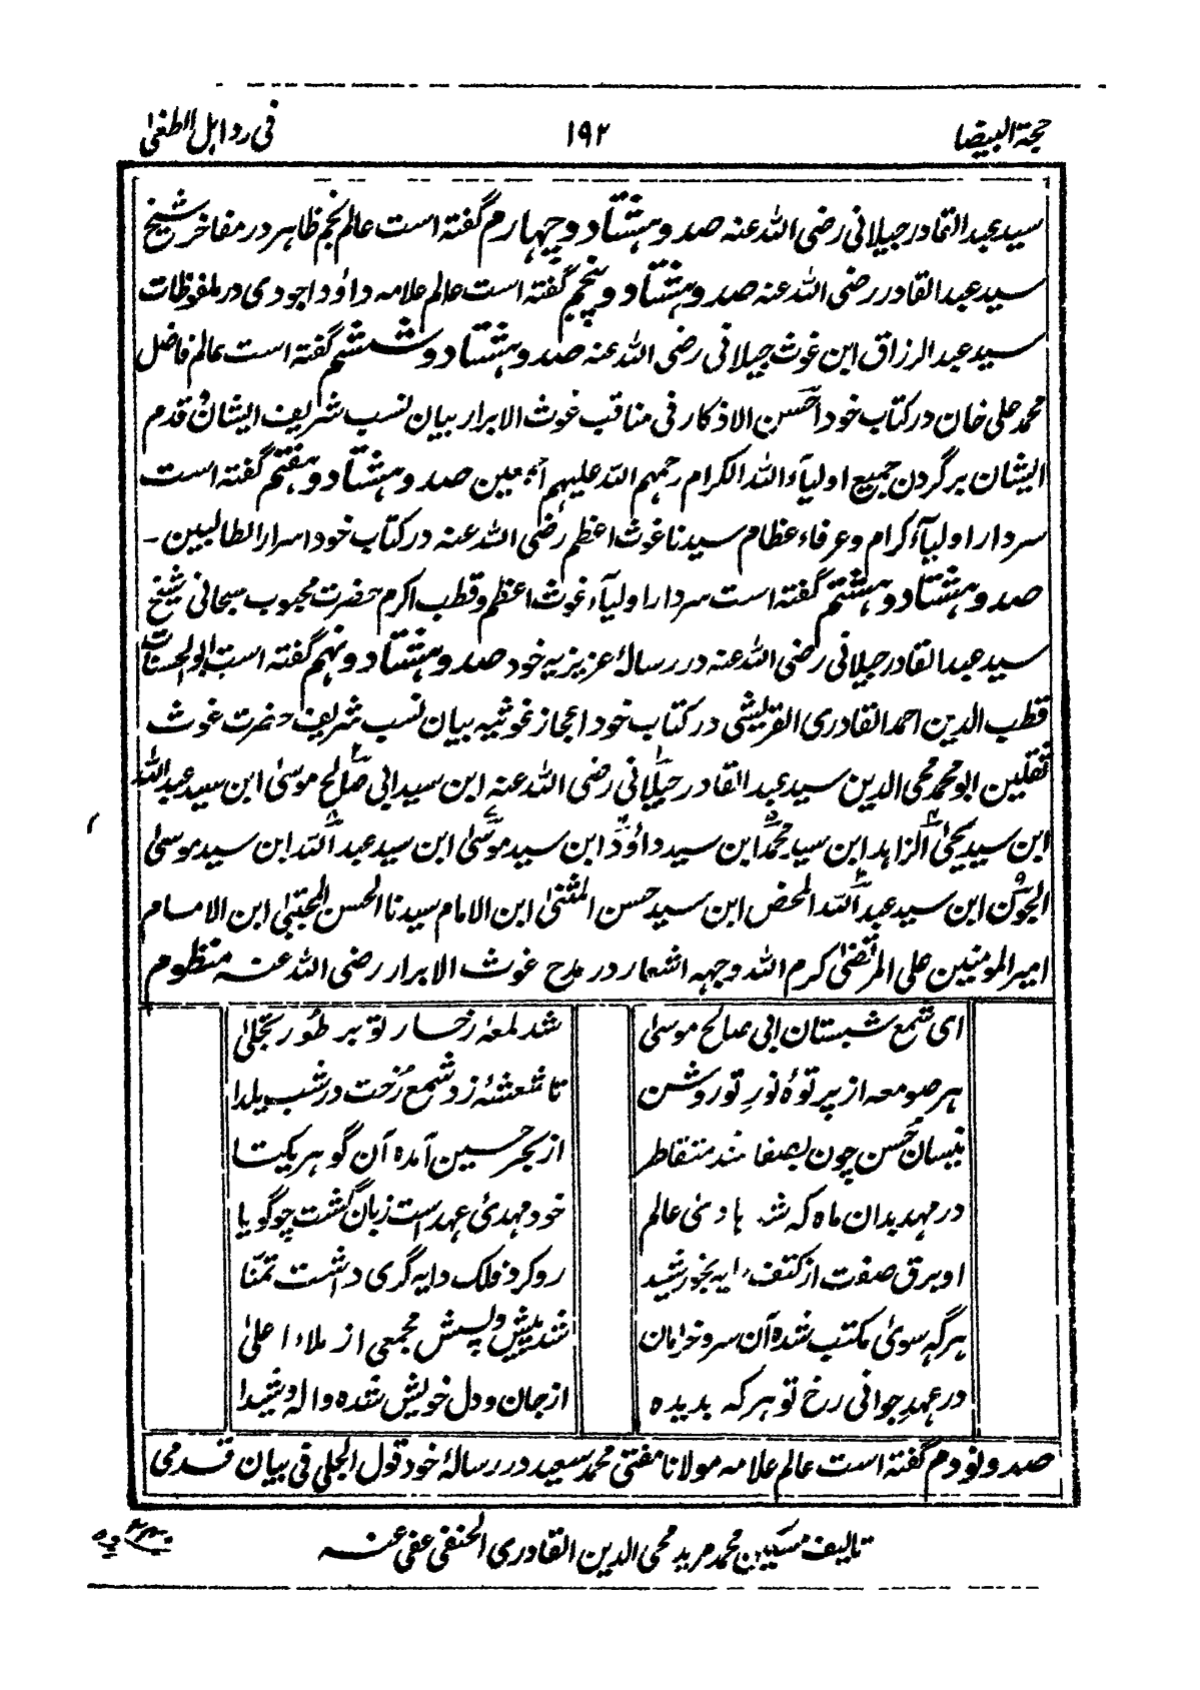 حجة البیضا ۱۹۲ فی رد اہل الطغیٰ
سید عبد القادر جیلانی رضی اللہ عنہ صد و ہشتاد و چہارم گفتہ است عالم نجم ظاہر در مفاخر شیخ
سید عبد القادر رضی اللہ عنہ صد و ہشتاد و پنجم گفتہ است عالم علامہ داؤد اجودی در ملفوظات
سید عبد الرزاق ابن غوث جیلانی رضی اللہ عنہ صد و ہشتاد و ششم گفتہ است عالم فاضل
محمد علی خان در کتاب خود احسن الاذکار فی مناقب غوث الابرار بیان نسب شریف ایشان و قدم
ایشان بر گردن جمیع اولیآء اللہ الکرام رحمہم اللہ علیہم اجمعین صد و ہشتاد و ہفتم گفتہ است
سردار اولیآء کرام و عرفاء عظام سیدنا غوث اعظم رضی اللہ عنہ در کتاب خود اسرار الطالبین -
صد و ہشتاد و ہشتم گفتہ است سردار اولیآء غوث اعظم و قطب اکرم حضرت محبوب سبحانی شیخ
سید عبد القادر جیلانی رضی اللہ عنہ در رسالۂ عزیزیہ خود صد و ہشتاد و نہم گفتہ است ابو الحسنات
قطب الدین احمد القادری القریشی در کتاب خود اعجاز غوثیہ بیان نسب شریف حضرت غوث
ثقلین ابو محمد محی الدین سید عبد القادر جیلانی رضی اللہ عنہ ابن سید ابی صالح موسیٰ ابن سید عبد اللہ
ابن سید یحیٰی الزاہد ابن سید محمد ابن سید داؤد ابن سید موسیٰ ابن سید عبد اللہ ابن سید موسیٰ
الجون ابن سید عبد اللہ المحض ابن سید حسن المثنیٰ ابن الامام سیدنا الحسن المجتبیٰ ابن الامام
امیر المومنین علی المرتضیٰ کرم اللہ وجہہ اشعار در مدح غوث الابرار رضی اللہ عنہ منظوم
ای شمع شبستان ابی صالح موسیٰ شد لمعۂ رخسار تو بر طور تجلیٰ
ہر صومعہ از پرتوۂ نورِ تو روشن تا شعشۂ زد شمع رُخت در شب یلدا
نیسان حسن چون بصفا شد متقاطر از بحر حسین آمدہ آن گوہر یکتا
در مہد بدان ماہ کہ شد ہادئ عالم خود مہدئ عہد است زبان گشت چو گویا
او برق صفت از کتف دایہ بخورشید رو کرد فلک دایہ گری داشت تمنّا
ہر گہ سوئ مکتب شدہ آن سرو خرامان شد پیش و پسش مجمعی از ملاء اعلیٰ
در عہدِ جوانی رخ تو ہر کہ بدیدہ از جان و دل خویش شدہ والہ و شیدا
صد و نودم گفتہ است عالم علامہ مولانا مفتی محمد سعید در رسالۂ خود قول الجلی فی بیان قدمی
تالیف مسکین محمد مرید محی الدین القادری الحنفی عفی عنہ